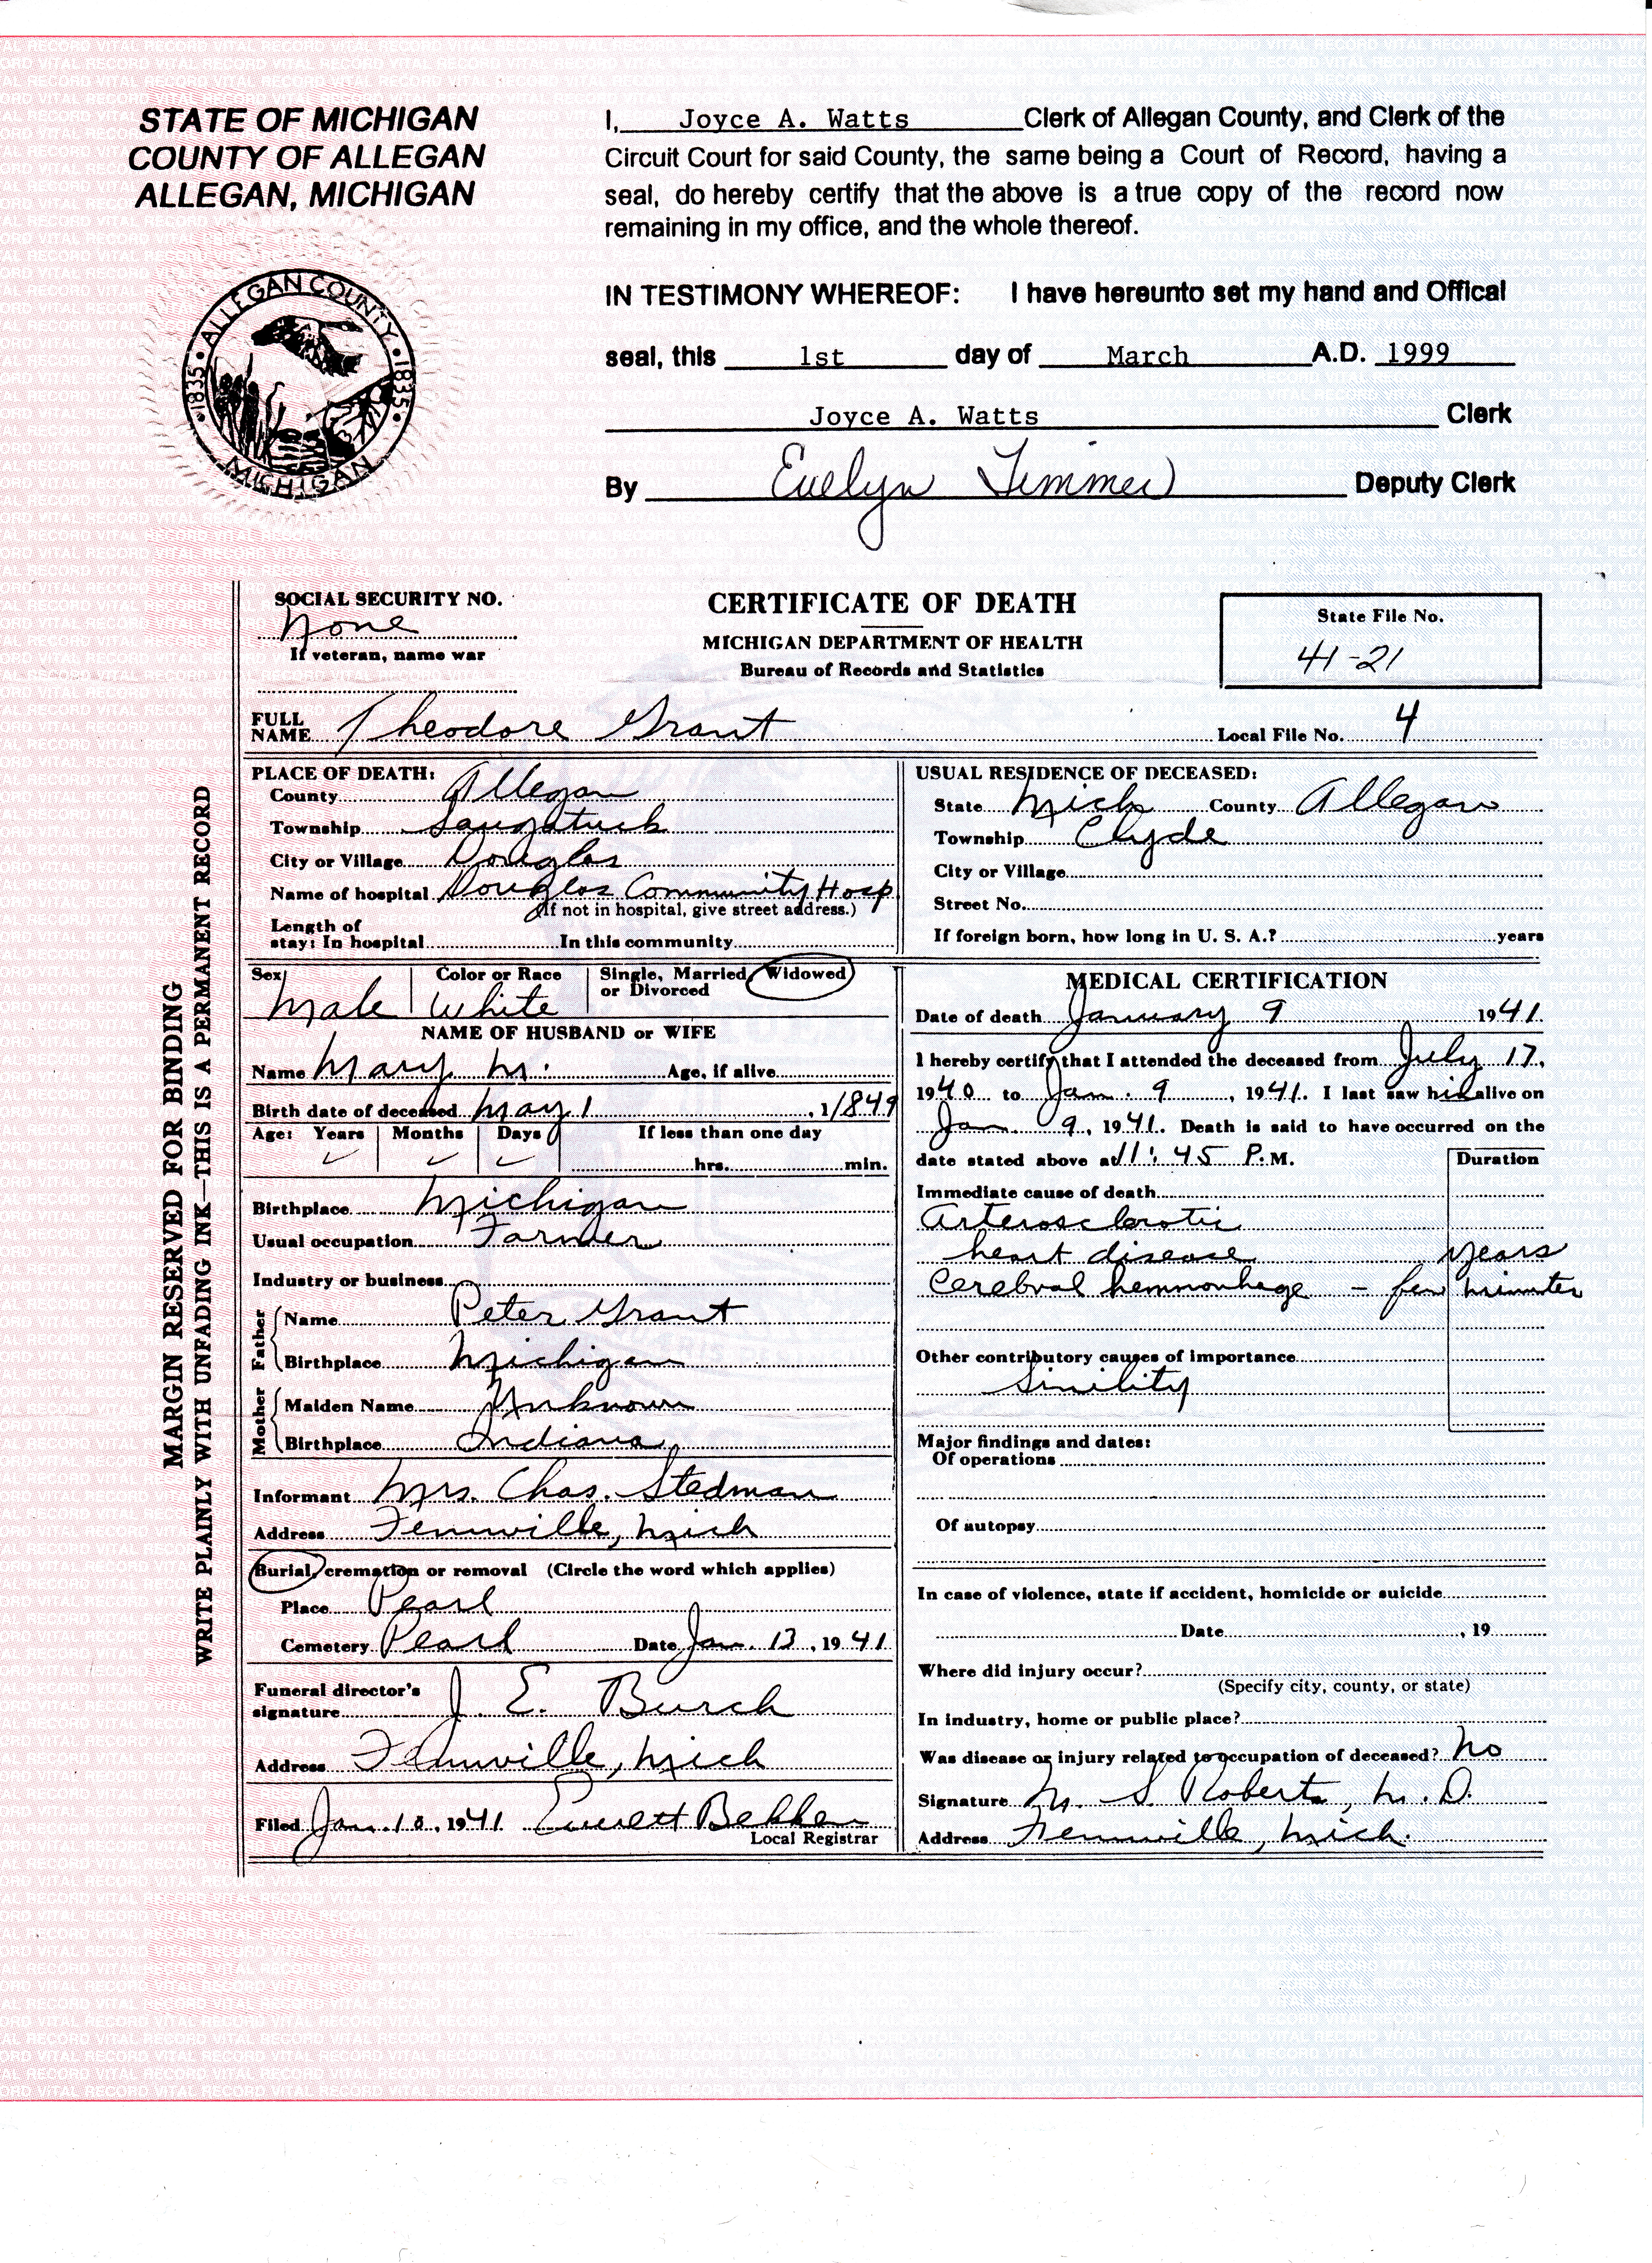 STATE OF MICHIGAN
COUNTY OF ALLEGAN
ALLEGAN, MICHIGAN
ALLEGAN COUNTY
1835 1835
MICHIGAN
I, Joyce A. Watts Clerk of Allegan County, and Clerk of the
Circuit Court for said County, the same being a Court of Record, having a
seal, do hereby certify that the above is a true copy of the record now
remaining in my office, and the whole thereof.
IN TESTIMONY WHEREOF: I have hereunto set my hand and Offical
seal, this 1st day of March A.D. 1999
Joyce A. Watts Clerk
By Evelyn Timmer Deputy Clerk
SOCIAL SECURITY NO.
None
If veteran, name war
CERTIFICATE OF DEATH
MICHIGAN DEPARTMENT OF HEALTH
Bureau of Records and Statistics
State File No.
41-21
FULL NAME Theodore Grant Local File No. 4
MARGIN RESERVED FOR BINDING
WRITE PLAINLY WITH UNFADING INK—THIS IS A PERMANENT RECORD
PLACE OF DEATH:
County Allegan
Township Saugatuck
City or Village Douglas
Name of hospital Douglas Community Hosp
(If not in hospital, give street address.)
Length of
stay: In hospital In this community
USUAL RESIDENCE OF DECEASED:
State Mich County Allegan
Township Clyde
City or Village
Street No.
If foreign born, how long in U. S. A.? years
Sex Male
Color or Race White
Single, Married, Widowed
or Divorced
NAME OF HUSBAND or WIFE
Name Mary M. Age, if alive
Birth date of deceased May 1, 1/849
Age: Years Months Days If less than one day
hrs. min.
Birthplace Michigan
Usual occupation Farmer
Industry or business
Father
Name Peter Grant
Birthplace Michigan
Mother
Maiden Name Unknown
Birthplace Indiana
Informant Mrs. Chas. Stedman
Address Fennville, Mich
Burial, cremation or removal (Circle the word which applies)
Place Pearl
Cemetery Pearl Date Jan. 13, 1941
Funeral director's
signature J. E. Burch
Address Fennville, Mich
Filed Jan. 10, 1941 Everett Bekken
Local Registrar
MEDICAL CERTIFICATION
Date of death January 9 1941.
I hereby certify that I attended the deceased from July 17,
1940 to Jan. 9, 1941. I last saw him alive on
Jan. 9, 1941. Death is said to have occurred on the
date stated above at 11:45 P.M. Duration
Immediate cause of death
Arterosclerotic
heart disease years
Cerebral hemmorhage - few minutes
Other contributory causes of importance
Sinility
Major findings and dates:
Of operations
Of autopsy
In case of violence, state if accident, homicide or suicide
Date , 19
Where did injury occur?
(Specify city, county, or state)
In industry, home or public place?
Was disease or injury related to occupation of deceased? No
Signature M. S. Roberts, M.D.
Address Fennville, Mich.